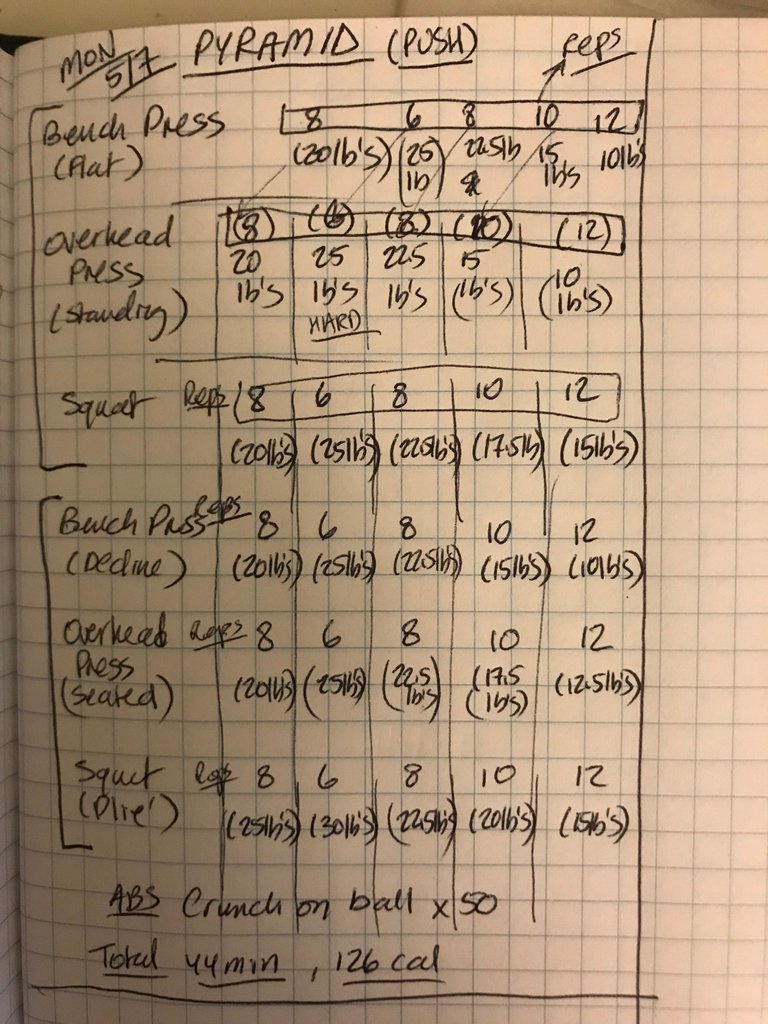 MON 5/7 PYRAMID (PUSH) reps
Bench Press 8 6 8 10 12
(Flat) (20lb's) (25 lb) 22.5lb 15 lb's 10lb's
Overhead (8) (6) (8) (10) (12)
Press 20 25 22.5 15 10
(Standing) lb's lb's lb's (lb's) (lb's)
HARD
Squat Reps 8 6 8 10 12
(20lb's) (25lb's) (22.5lb's) (17.5lb) (15lb's)
Bench Press Reps 8 6 8 10 12
(Decline) (20lb's) (25lb's) (22.5lb's) (15lb's) (10lb's)
Overhead Reps 8 6 8 10 12
Press
(Seated) (20lb's) (25lb's) (22.5 lb's) (17.5 lb's) (12.5lb's)
Squat Reps 8 6 8 10 12
(Plie') (25lb's) (30lb's) (22.5lb's) (20lb's) (15lb's)
ABS Crunch on ball x 50
Total 44min, 126 cal